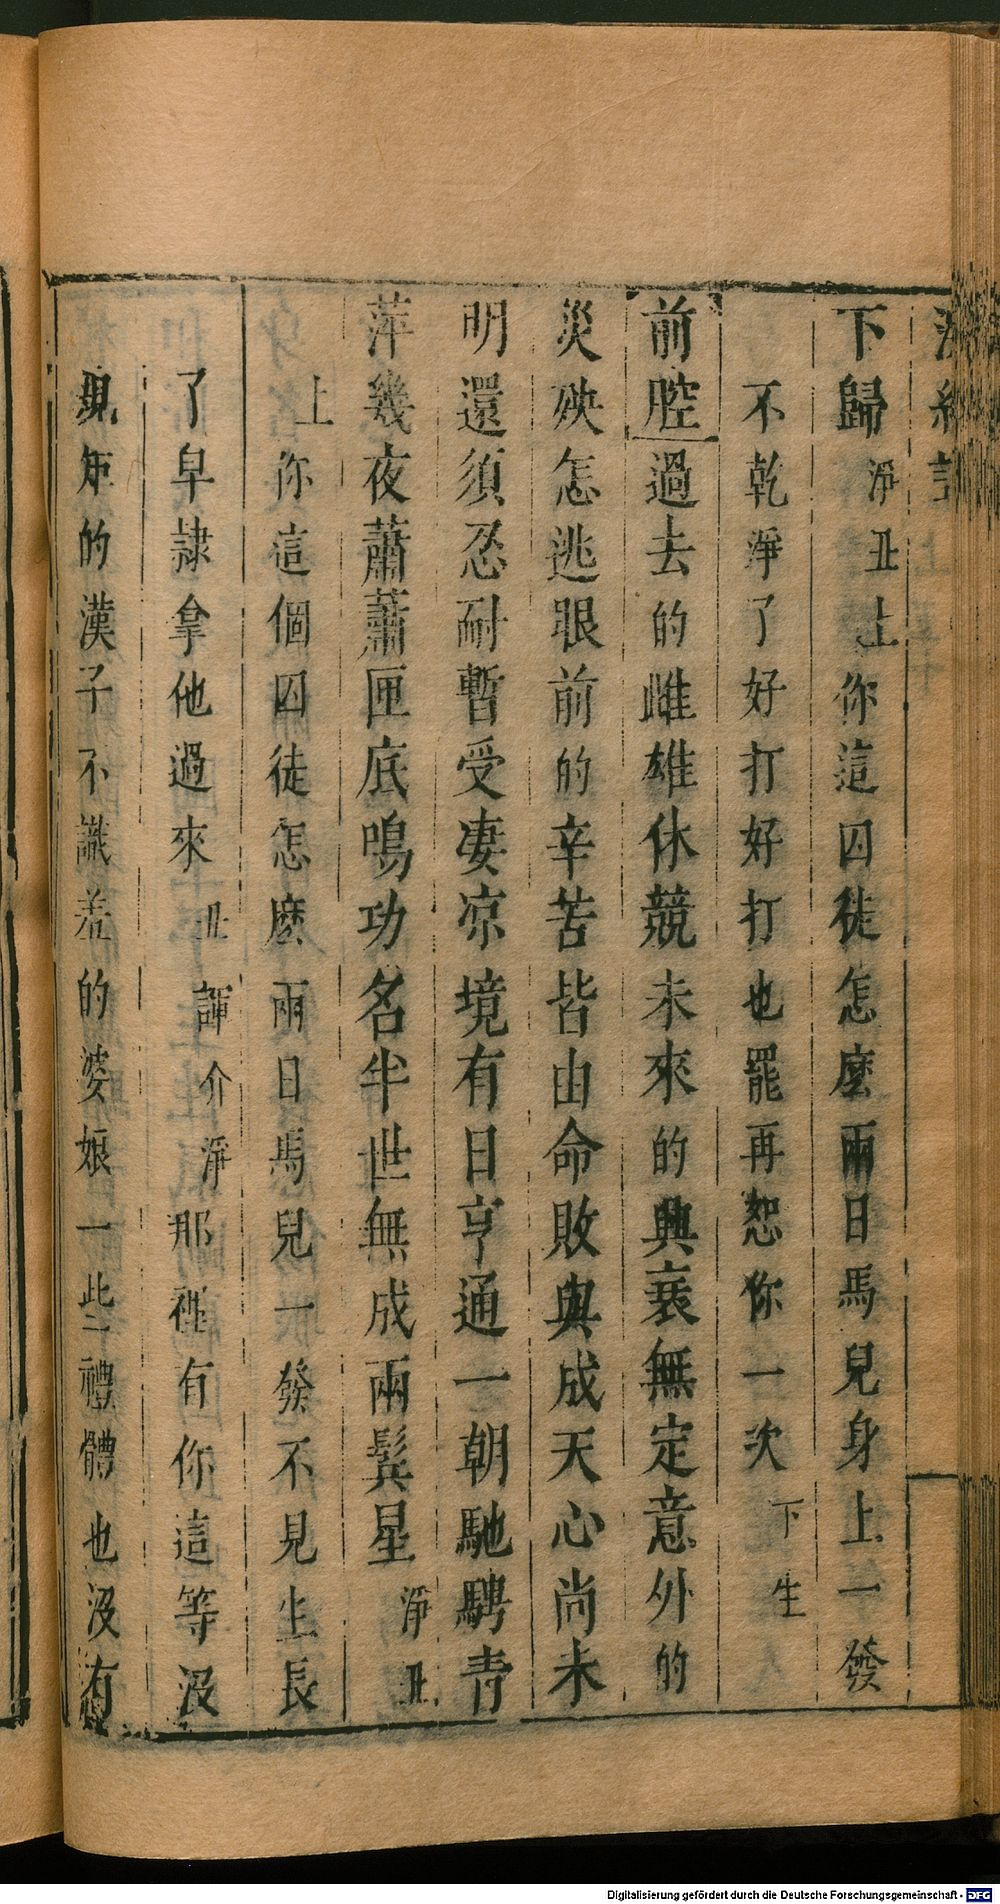 下歸淨丑上你這囚徒怎麽兩日馬兒身上一發
不乾淨了好打好打也罷再恕你一次下生
前腔過去的雌雄休競未來的興衰無定意外的
災殃怎逃眼前的辛苦皆由命敗與成天心尚未
明還須忍耐暫受凄凉境有日亨通一朝馳騁青
萍幾夜蕭蕭匣底鳴功名半世無成兩鬂星淨丑
上你這個囚徒怎麽兩日馬兒一發不見生長
了皁隷拿他過來丑譁介淨那裡有你這等没
規矩的漢子不識羞的婆娘一些禮體也没有
Digitalisierung gefördert durch die Deutsche Forschungsgemeinschaft - DFG